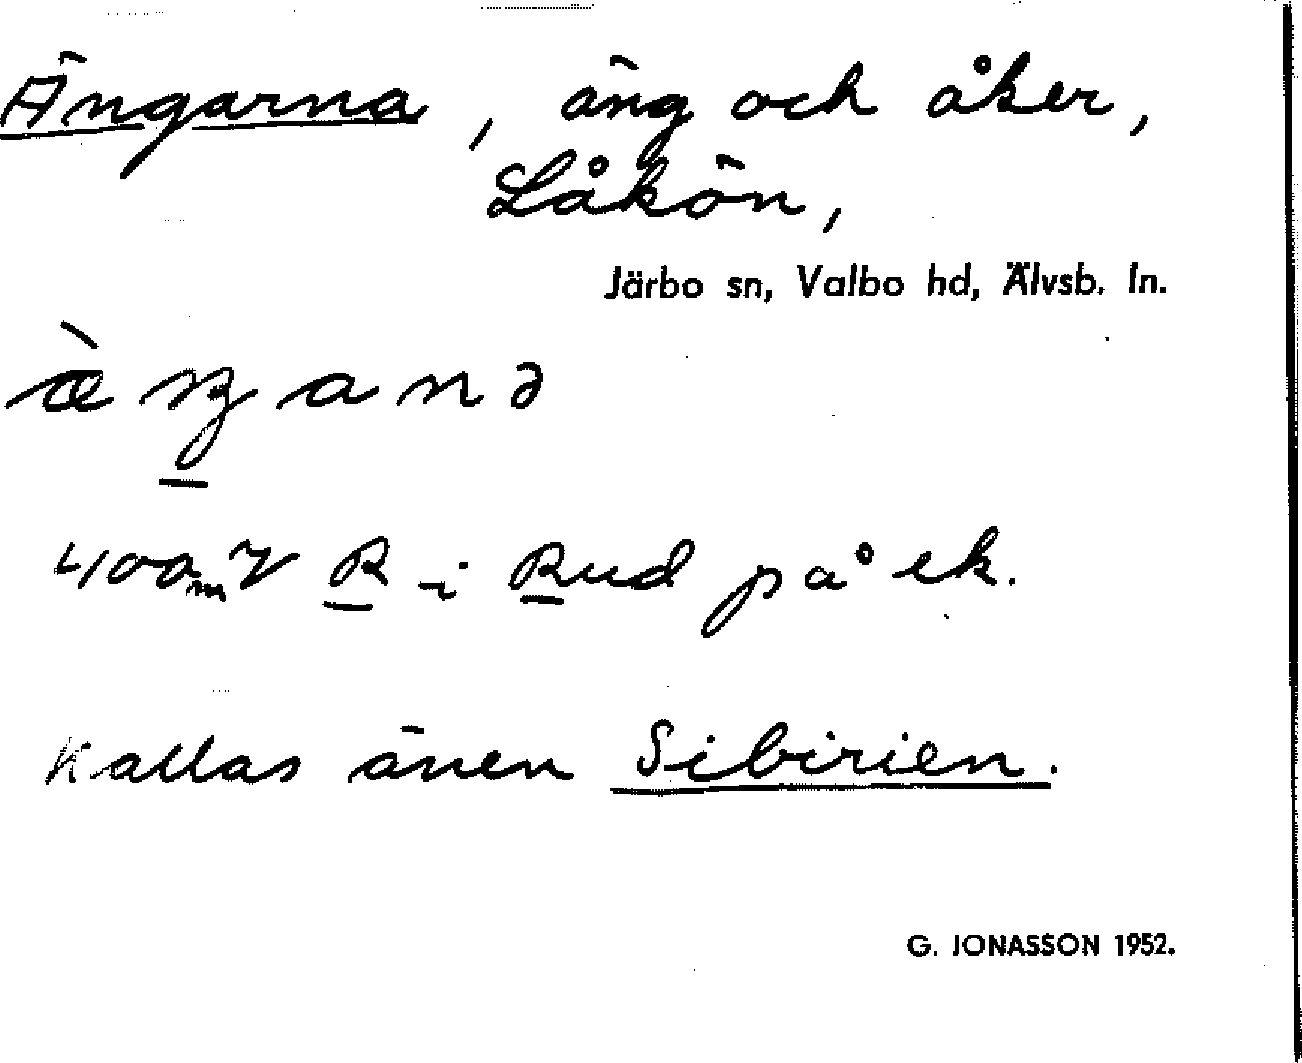 Ängarna, äng och åker,
Låkön,
Järbo sn, Valbo hd, Älvsb. ln.
æ̀ŋanə
400 m V R i Rud på ek.
Kallas även Sibirien.
G. JONASSON 1952.